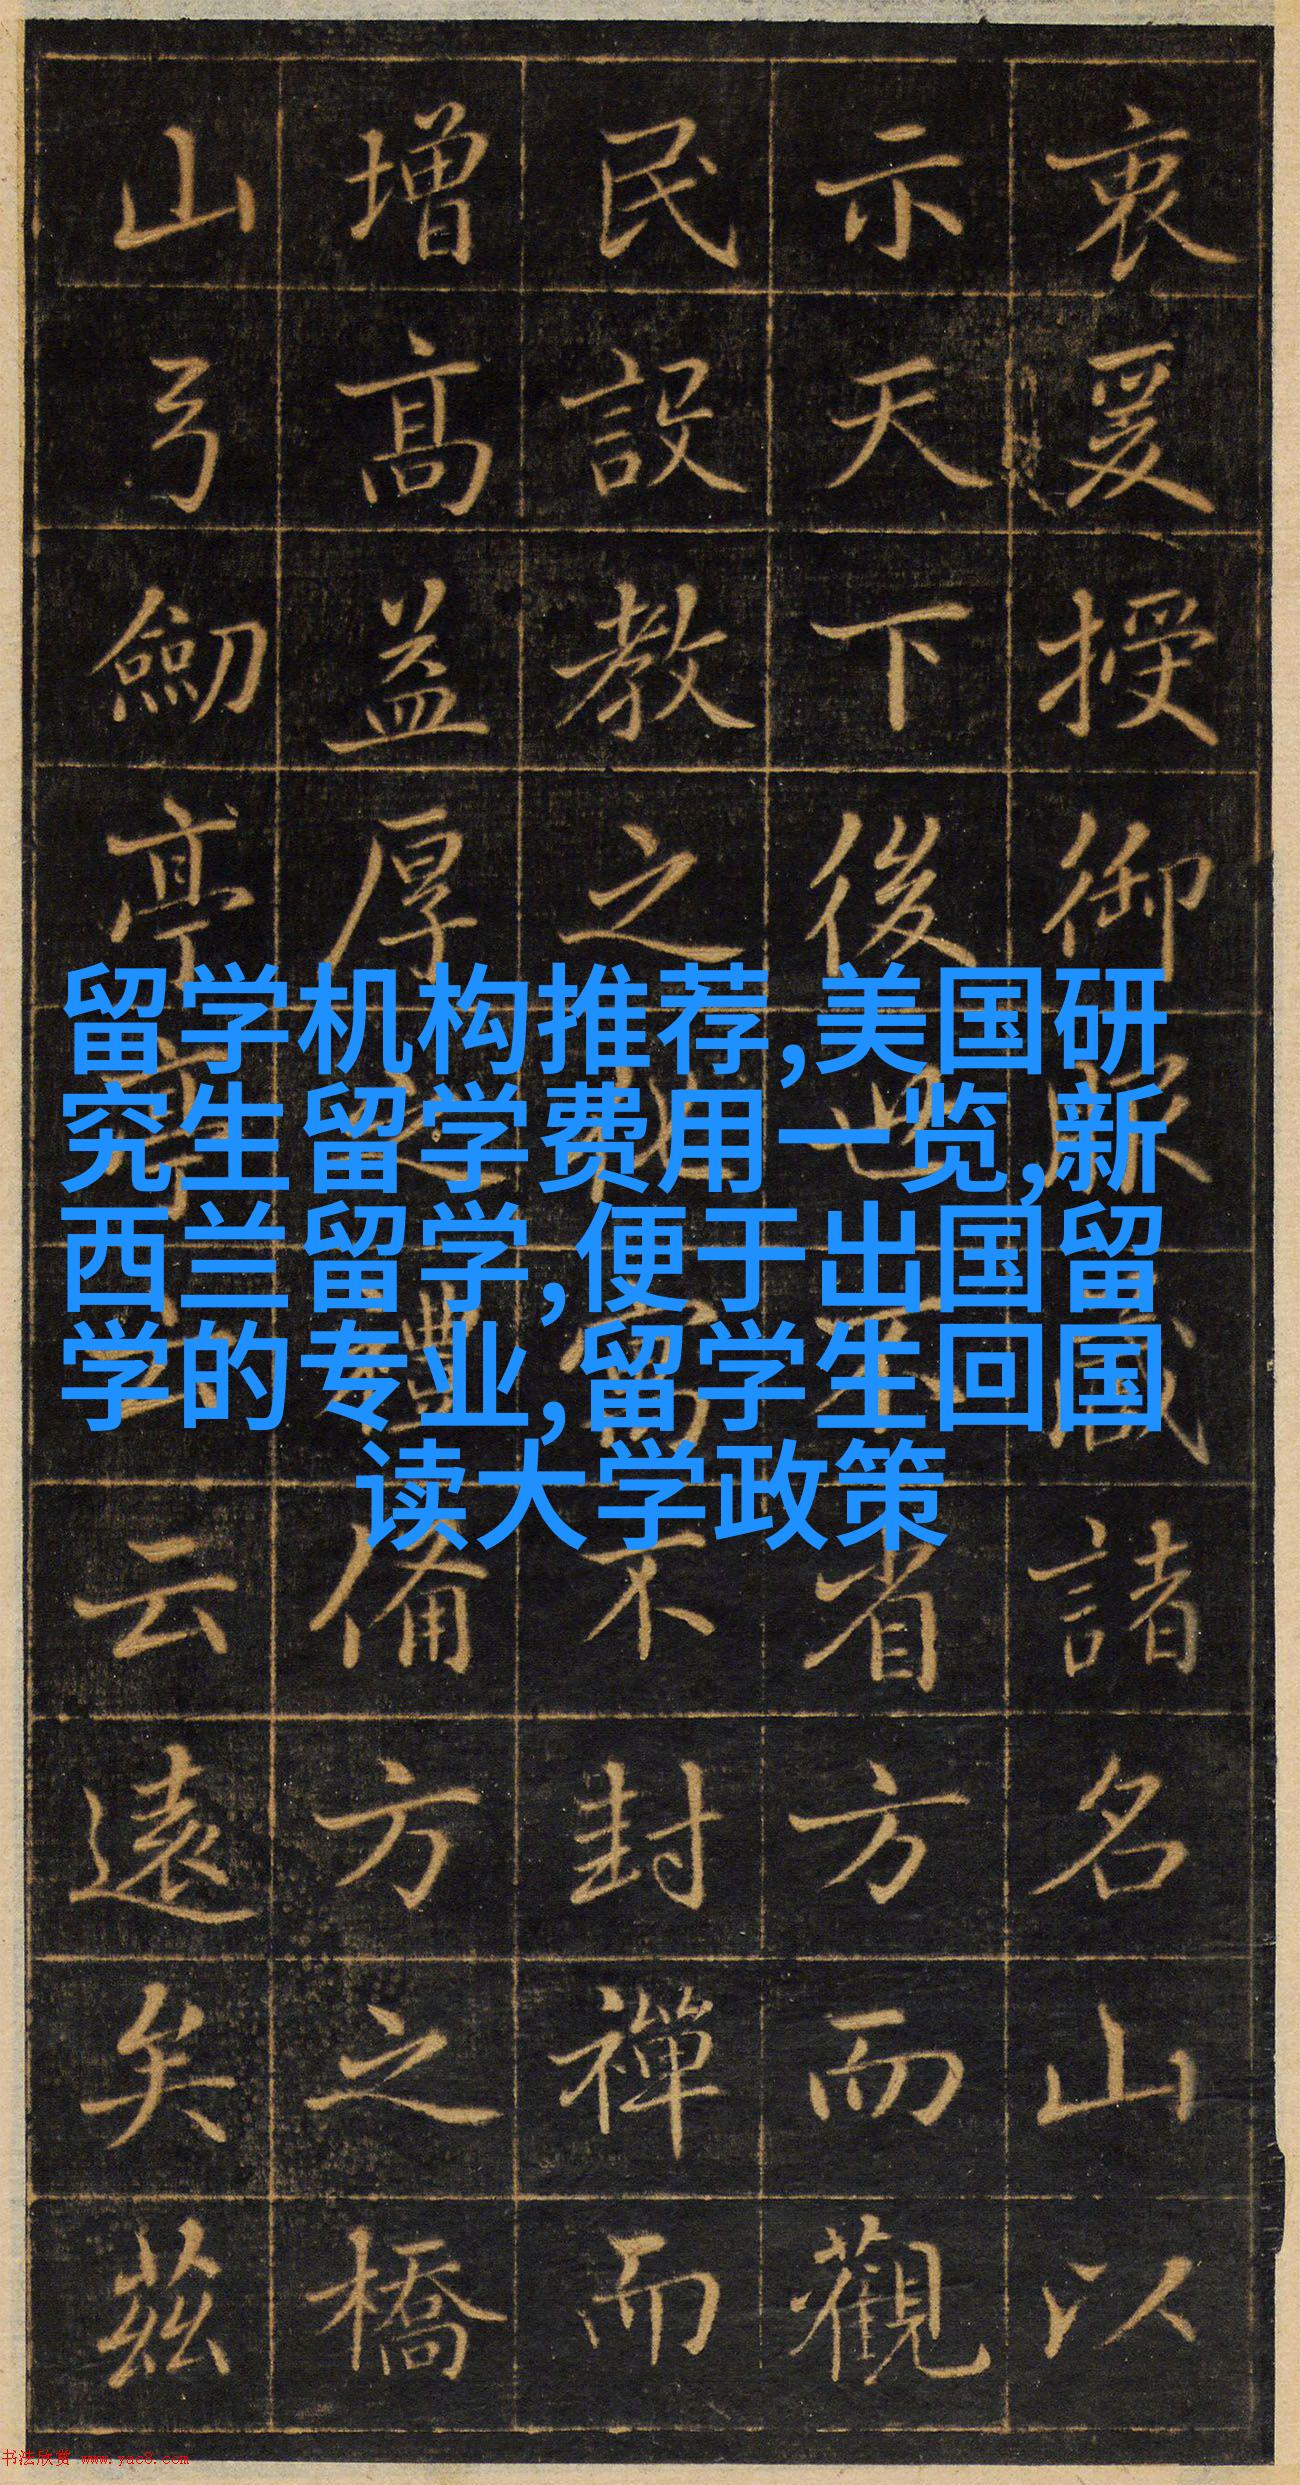 衷爰授御藏諸名山以
示天下後不省方而觀
民設教之不封禪而
增高益厚之禮備方之橋
山弓劒亭亭云云遠矣茲
留学机构推荐,美国研
究生留学费用一览,新
西兰留学,便于出国留
学的专业,留学生回国
读大学政策
书法欣赏 www.yac8.com